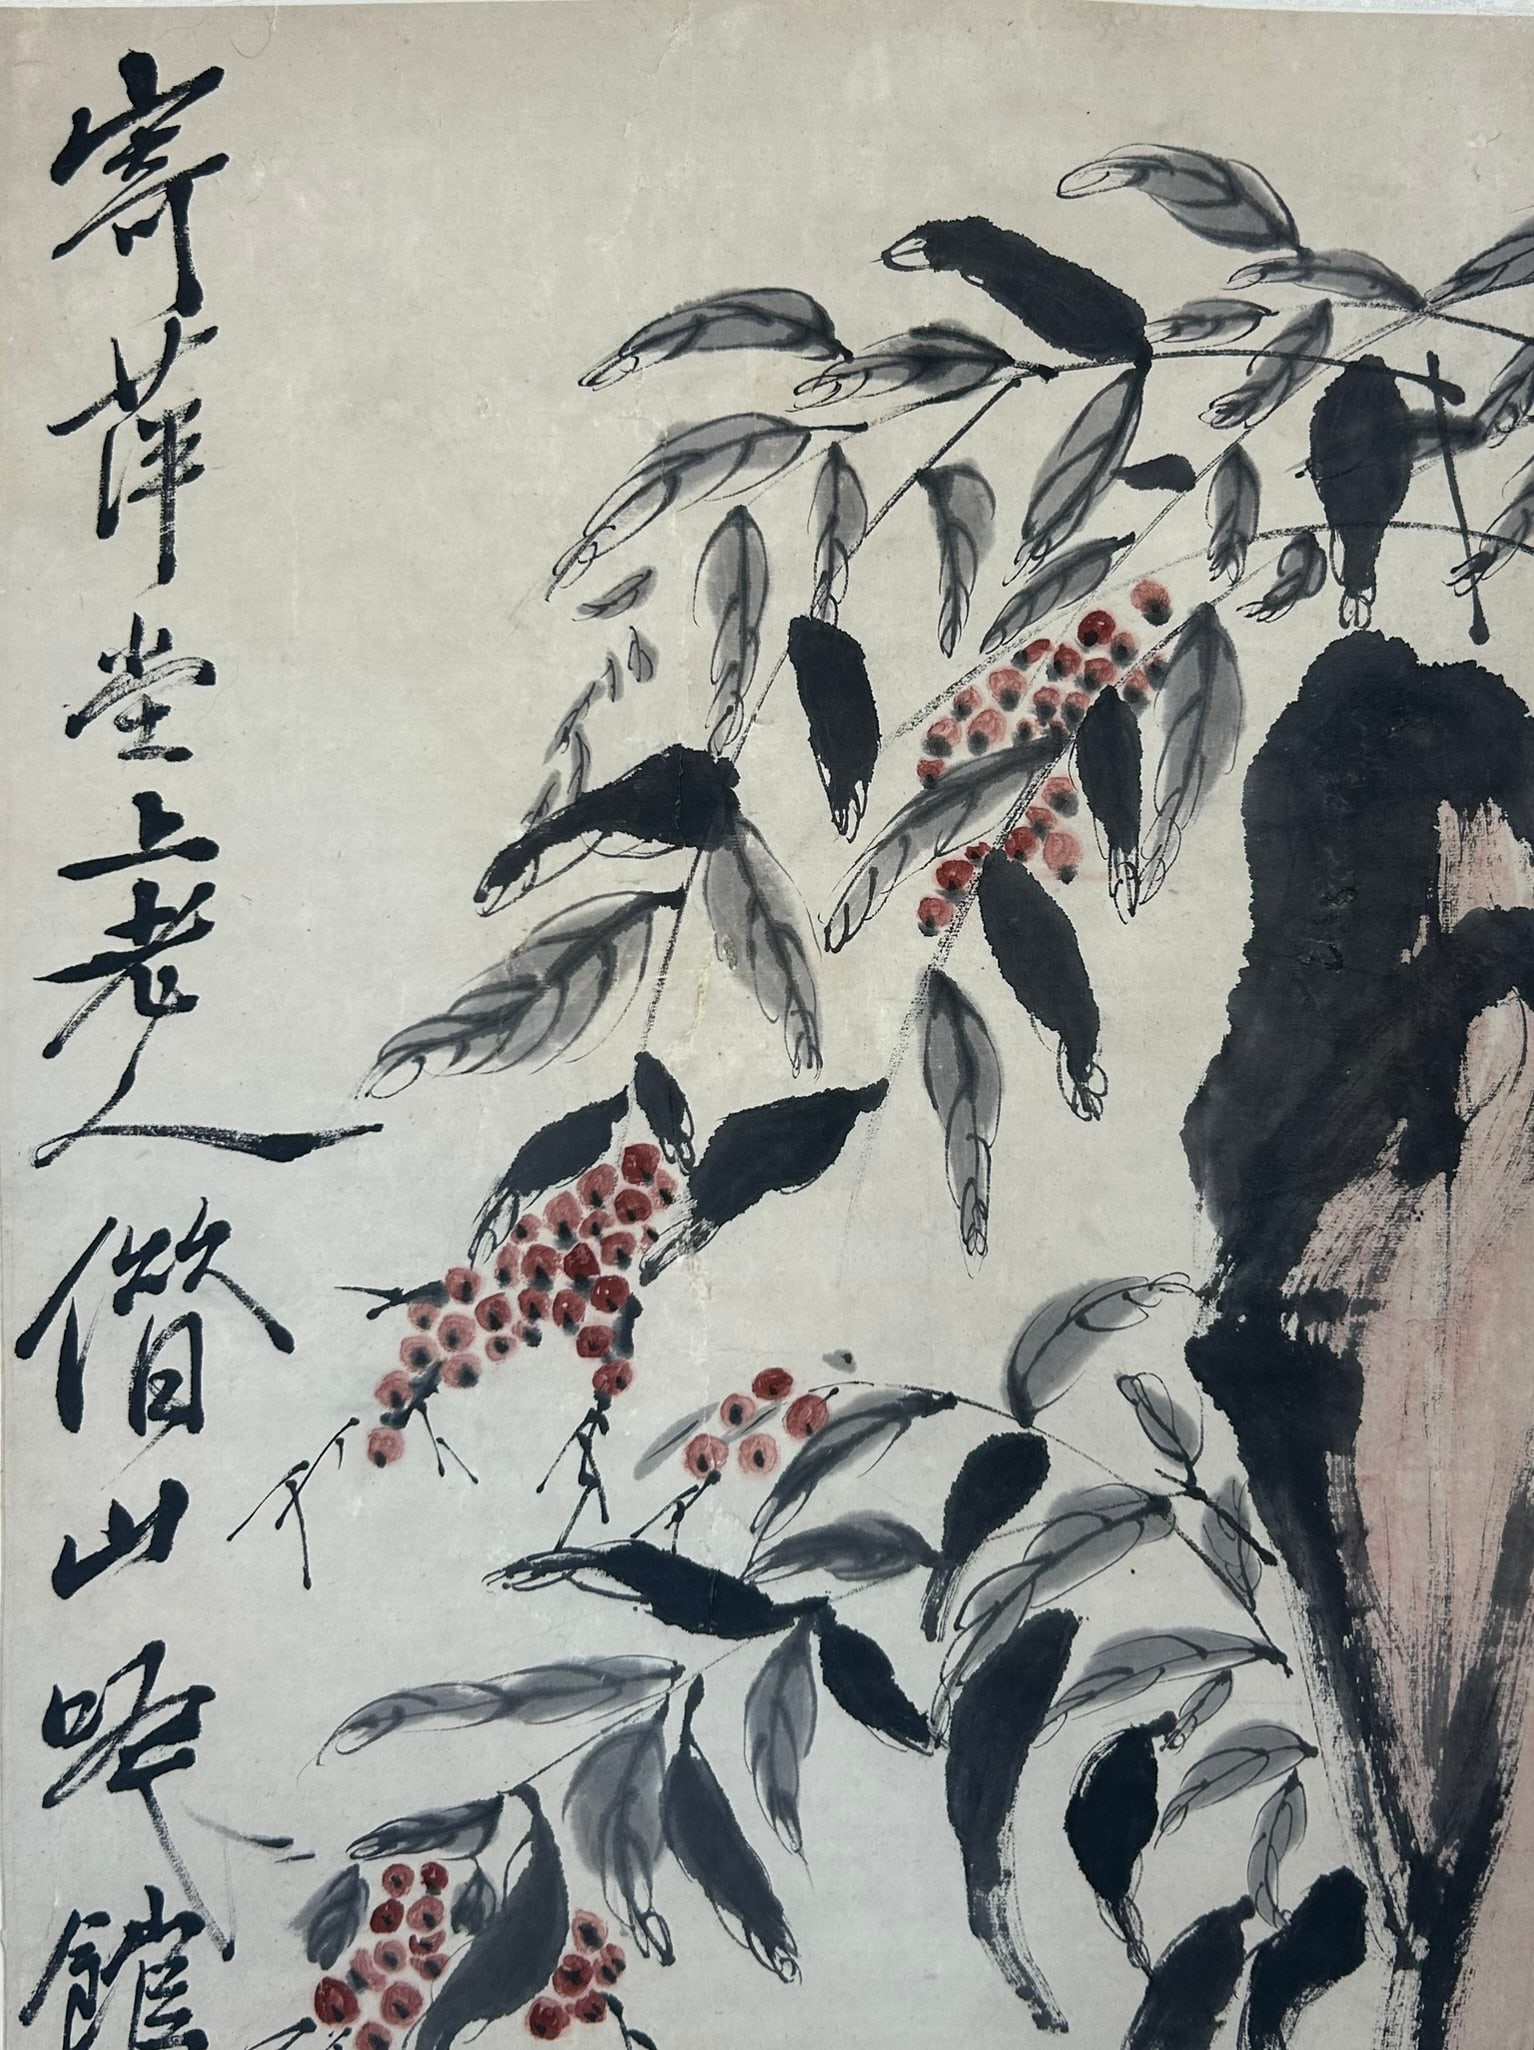 寄萍堂上老人借山吟館